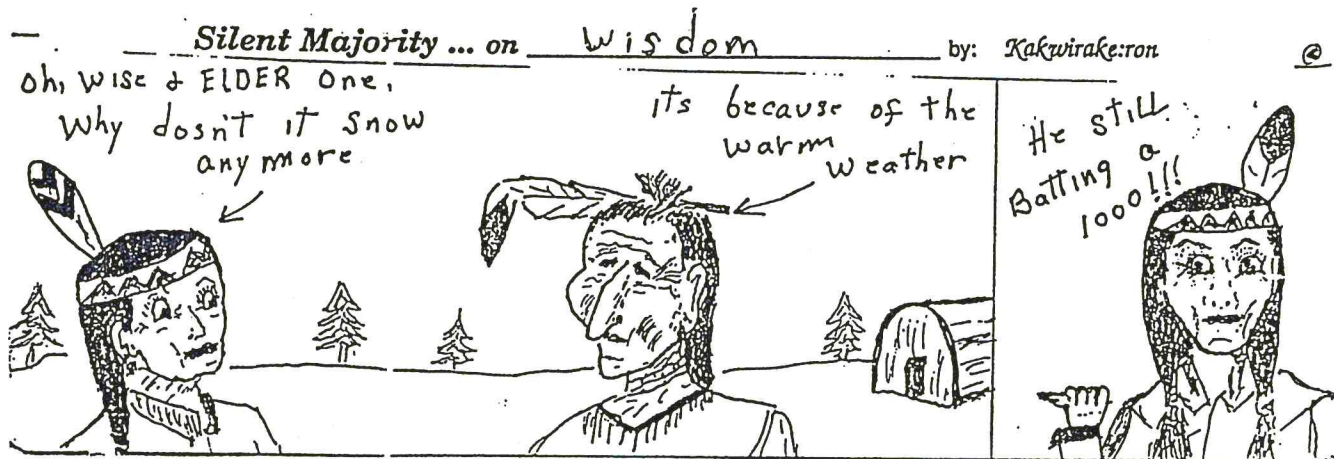 Silent Majority ... on wisdom by: Kakwirake:ron
Oh, wise & ELDER One,
Why dosn't it snow
any more
its because of the
warm
weather
He still
Batting a
1000!!!